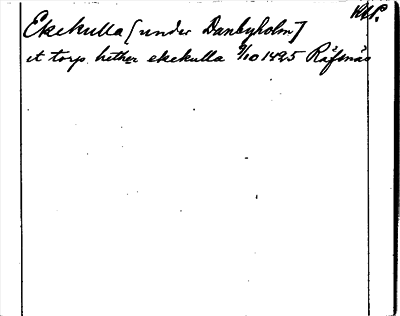 Ekekulla [under Danbyholm]
it torp hether ekekulla 9/10 1495 Räfsnäs